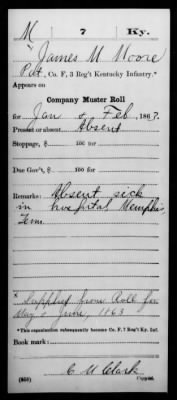 M 7 Ky.
* James M Moore
Pvt, Co. F, 3 Reg't Kentucky Infantry.*
Appears on
Company Muster Roll
for Jan & Feb, 1863.
Present or absent Absent
Stoppage, $ 100 for
Due Gov't, $ 100 for
Remarks: Absent sick
in hospital Memphis,
Tenn.
* Supplied from Roll for
May & June, 1863
*This organization subsequently became Co. F, 7 Reg't Ky. Inf.
Book mark:
C M Clark
(858) Copyist.